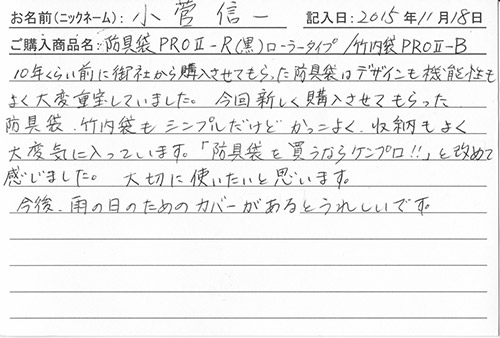 お名前(ニックネーム): 小菅信一 記入日: 2015年11月18日
ご購入商品名: 防具袋PROⅡ-R(黒)ローラータイプ/竹内袋PROⅡ-B
10年くらい前に御社から購入させてもらった防具袋はデザインも機能性も
よく大変重宝していました。今回新しく購入させてもらった
防具袋、竹内袋もシンプルだけどかっこよく、収納もよく
大変気に入っています。「防具袋を買うならケンプロ!!」と改めて
感じました。大切に使いたいと思います。
今後、雨の日のためのカバーがあるとうれしいです。